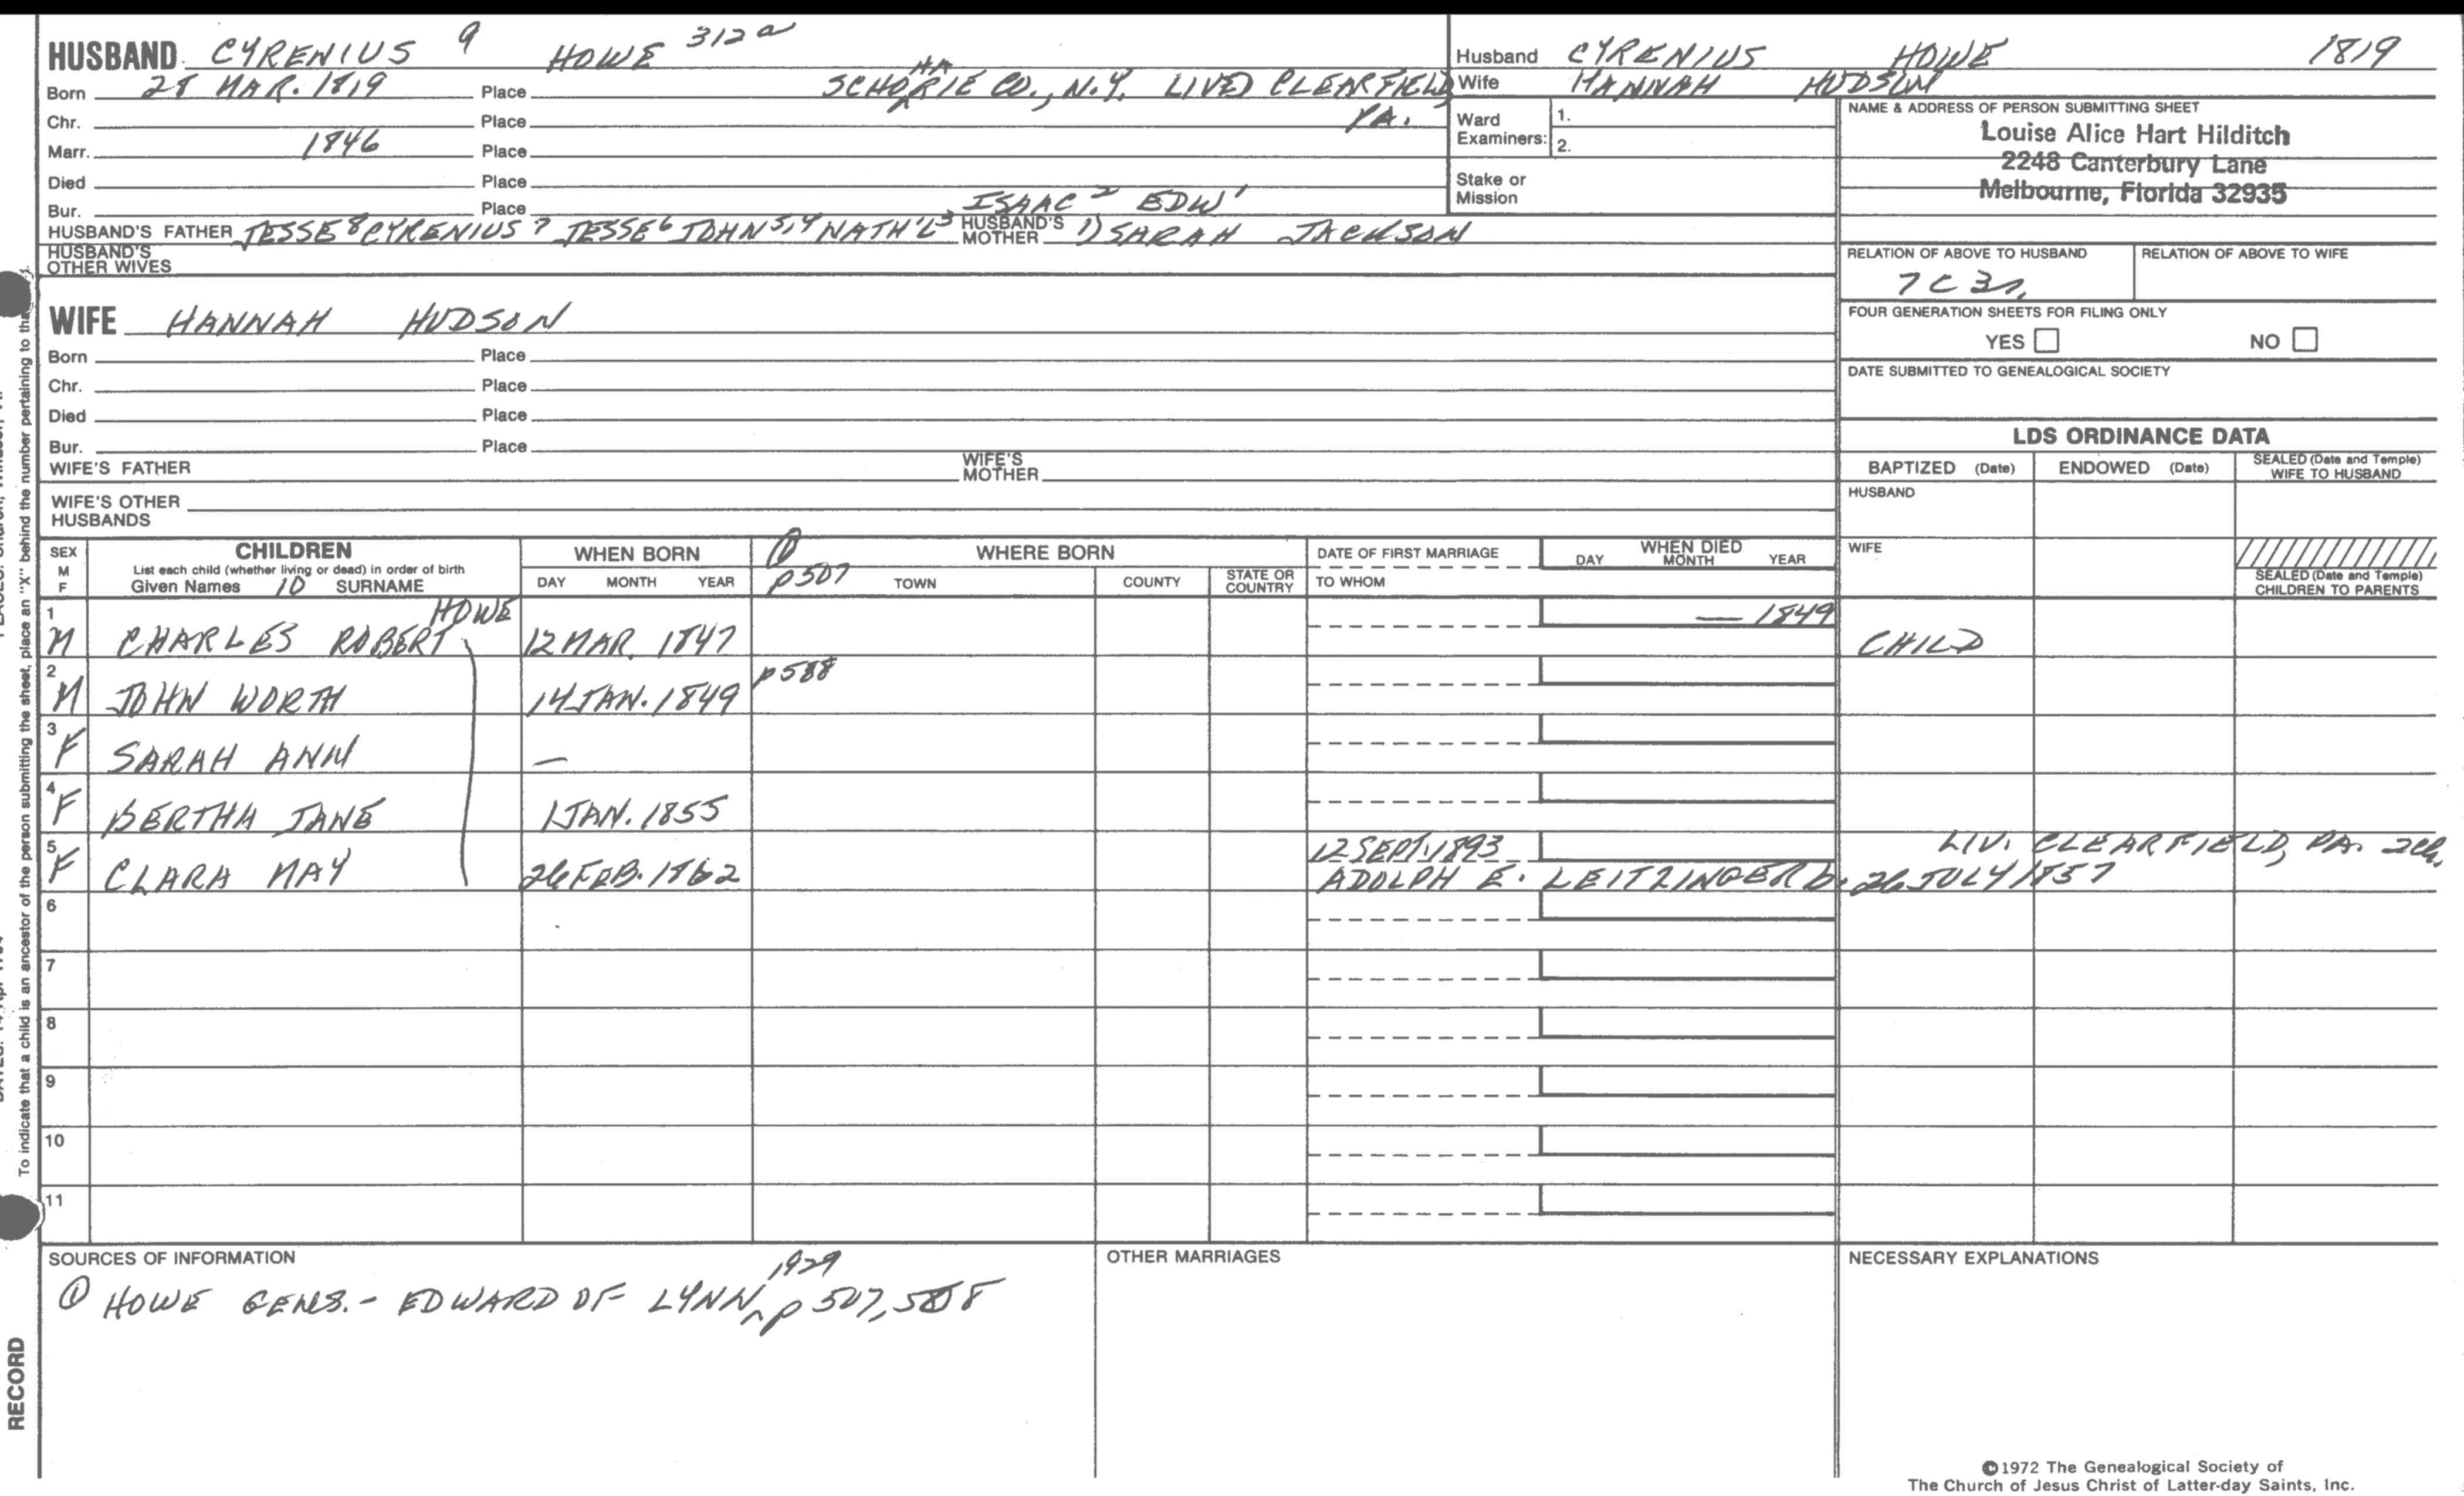 HUSBAND CYRENIUS 9 HOWE 312a
Born 28 MAR. 1819 Place SCHOHARIE CO., N.Y. LIVED CLEARFIELD
Chr. Place PA.
Marr. 1846 Place
Died Place
Bur. Place ISAAC 2 EDW 1
HUSBAND'S FATHER JESSE 8 CYRENIUS 7 JESSE 6 JOHN 5,4 NATH'L 3 HUSBAND'S MOTHER 1) SARAH JACKSON
HUSBAND'S OTHER WIVES
Husband CYRENIUS HOWE 1819
Wife HANNAH HUDSON
Ward Examiners: 1.
2.
Stake or Mission
NAME & ADDRESS OF PERSON SUBMITTING SHEET
Louise Alice Hart Hilditch
2248 Canterbury Lane
Melbourne, Florida 32935
RELATION OF ABOVE TO HUSBAND RELATION OF ABOVE TO WIFE
7C3r.
FOUR GENERATION SHEETS FOR FILING ONLY
YES NO
DATE SUBMITTED TO GENEALOGICAL SOCIETY
WIFE HANNAH HUDSON
Born Place
Chr. Place
Died Place
Bur. Place
WIFE'S FATHER WIFE'S MOTHER
WIFE'S OTHER HUSBANDS
LDS ORDINANCE DATA
BAPTIZED (Date) ENDOWED (Date) SEALED (Date and Temple) WIFE TO HUSBAND
HUSBAND
WIFE
SEALED (Date and Temple) CHILDREN TO PARENTS
SEX M F
CHILDREN
List each child (whether living or dead) in order of birth
Given Names 10 SURNAME
WHEN BORN
DAY MONTH YEAR
① p507
WHERE BORN
TOWN COUNTY STATE OR COUNTRY
DATE OF FIRST MARRIAGE
TO WHOM
WHEN DIED
DAY MONTH YEAR
1 M CHARLES ROBERT HOWE 12 MAR. 1847 — 1849 CHILD
2 M JOHN WORTH 14 JAN. 1849 p588
3 F SARAH ANN —
4 F BERTHA JANE 1 JAN. 1855
5 F CLARA MAY 26 FEB. 1862 12 SEPT. 1893 LIV. CLEARFIELD, PA. 2ch.
ADOLPH E. LEITZINGER b. 26 JULY 1857
6
7
8
9
10
11
SOURCES OF INFORMATION
① HOWE GENS. - EDWARD OF LYNN, 1929 p 507, 588
OTHER MARRIAGES
NECESSARY EXPLANATIONS
©1972 The Genealogical Society of
The Church of Jesus Christ of Latter-day Saints, Inc.
To indicate that a child is an ancestor of the person submitting the sheet, place an "X" behind the number pertaining to that
RECORD